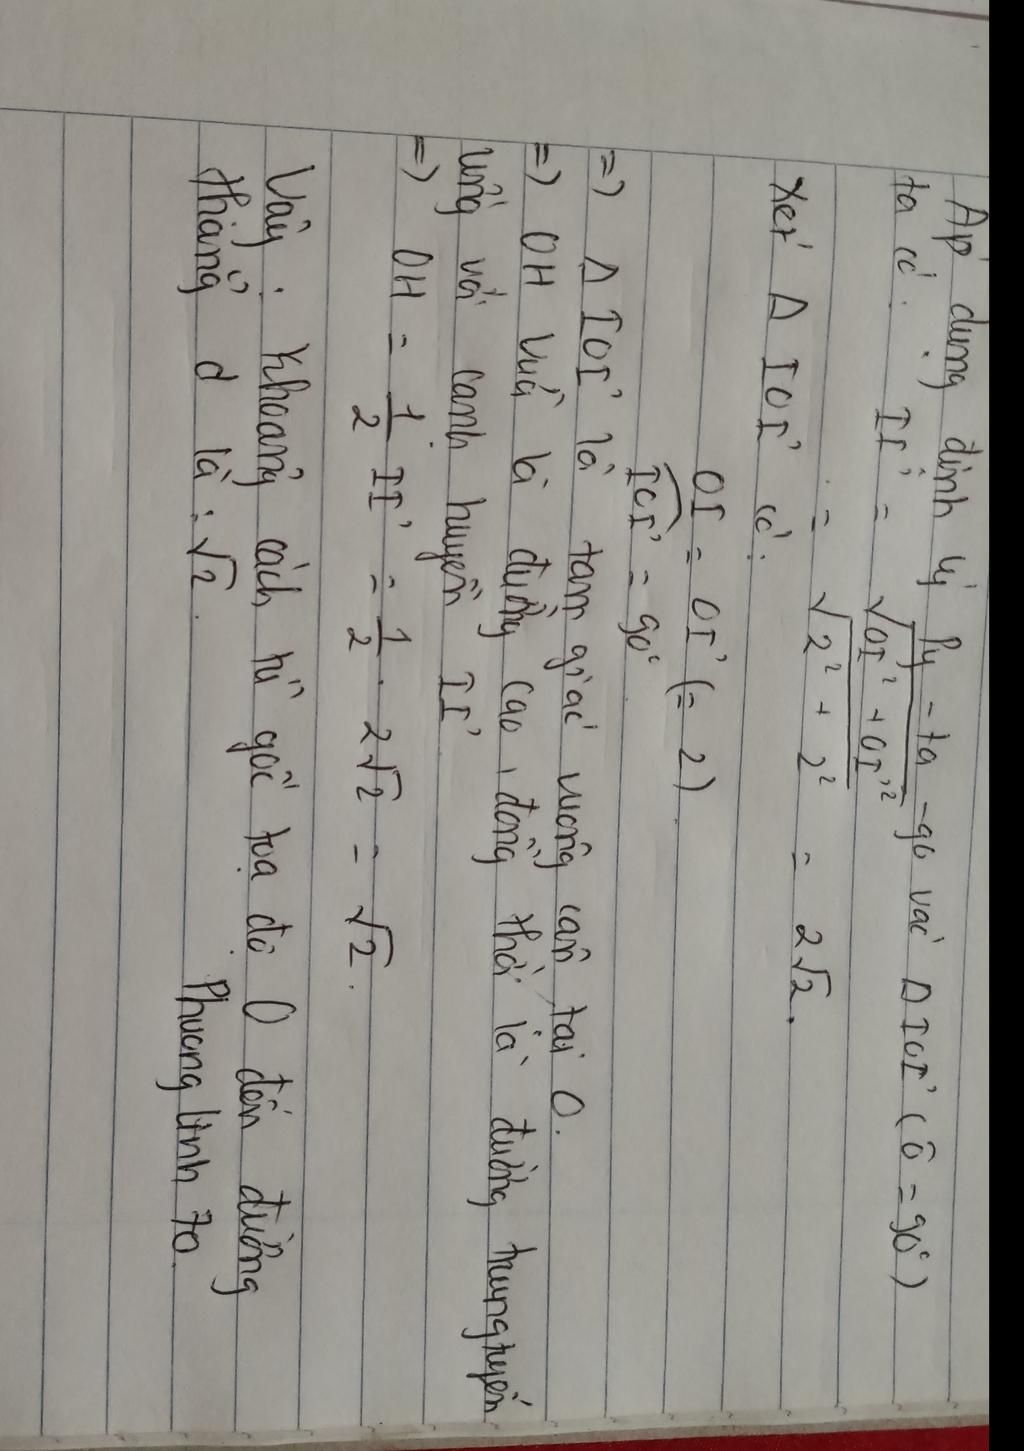 Áp dụng định lý Py-ta-go vào Δ IOI' (Ô = 90°)
ta có: II' = √OI² + OI'²
= √2² + 2² = 2√2.
Xét Δ IOI' có:
OI = OI' (= 2)
IOI' = 90°
=) Δ IOI' là tam giác vuông cân tại O.
=) OH vừa là đường cao, đồng thời là đường trung tuyến
ứng với cạnh huyền II'
=) OH = 1/2 II' = 1/2 . 2√2 = √2.
Vậy: Khoảng cách từ gốc tọa độ O đến đường
thẳng d là: √2.
Phương Linh 70